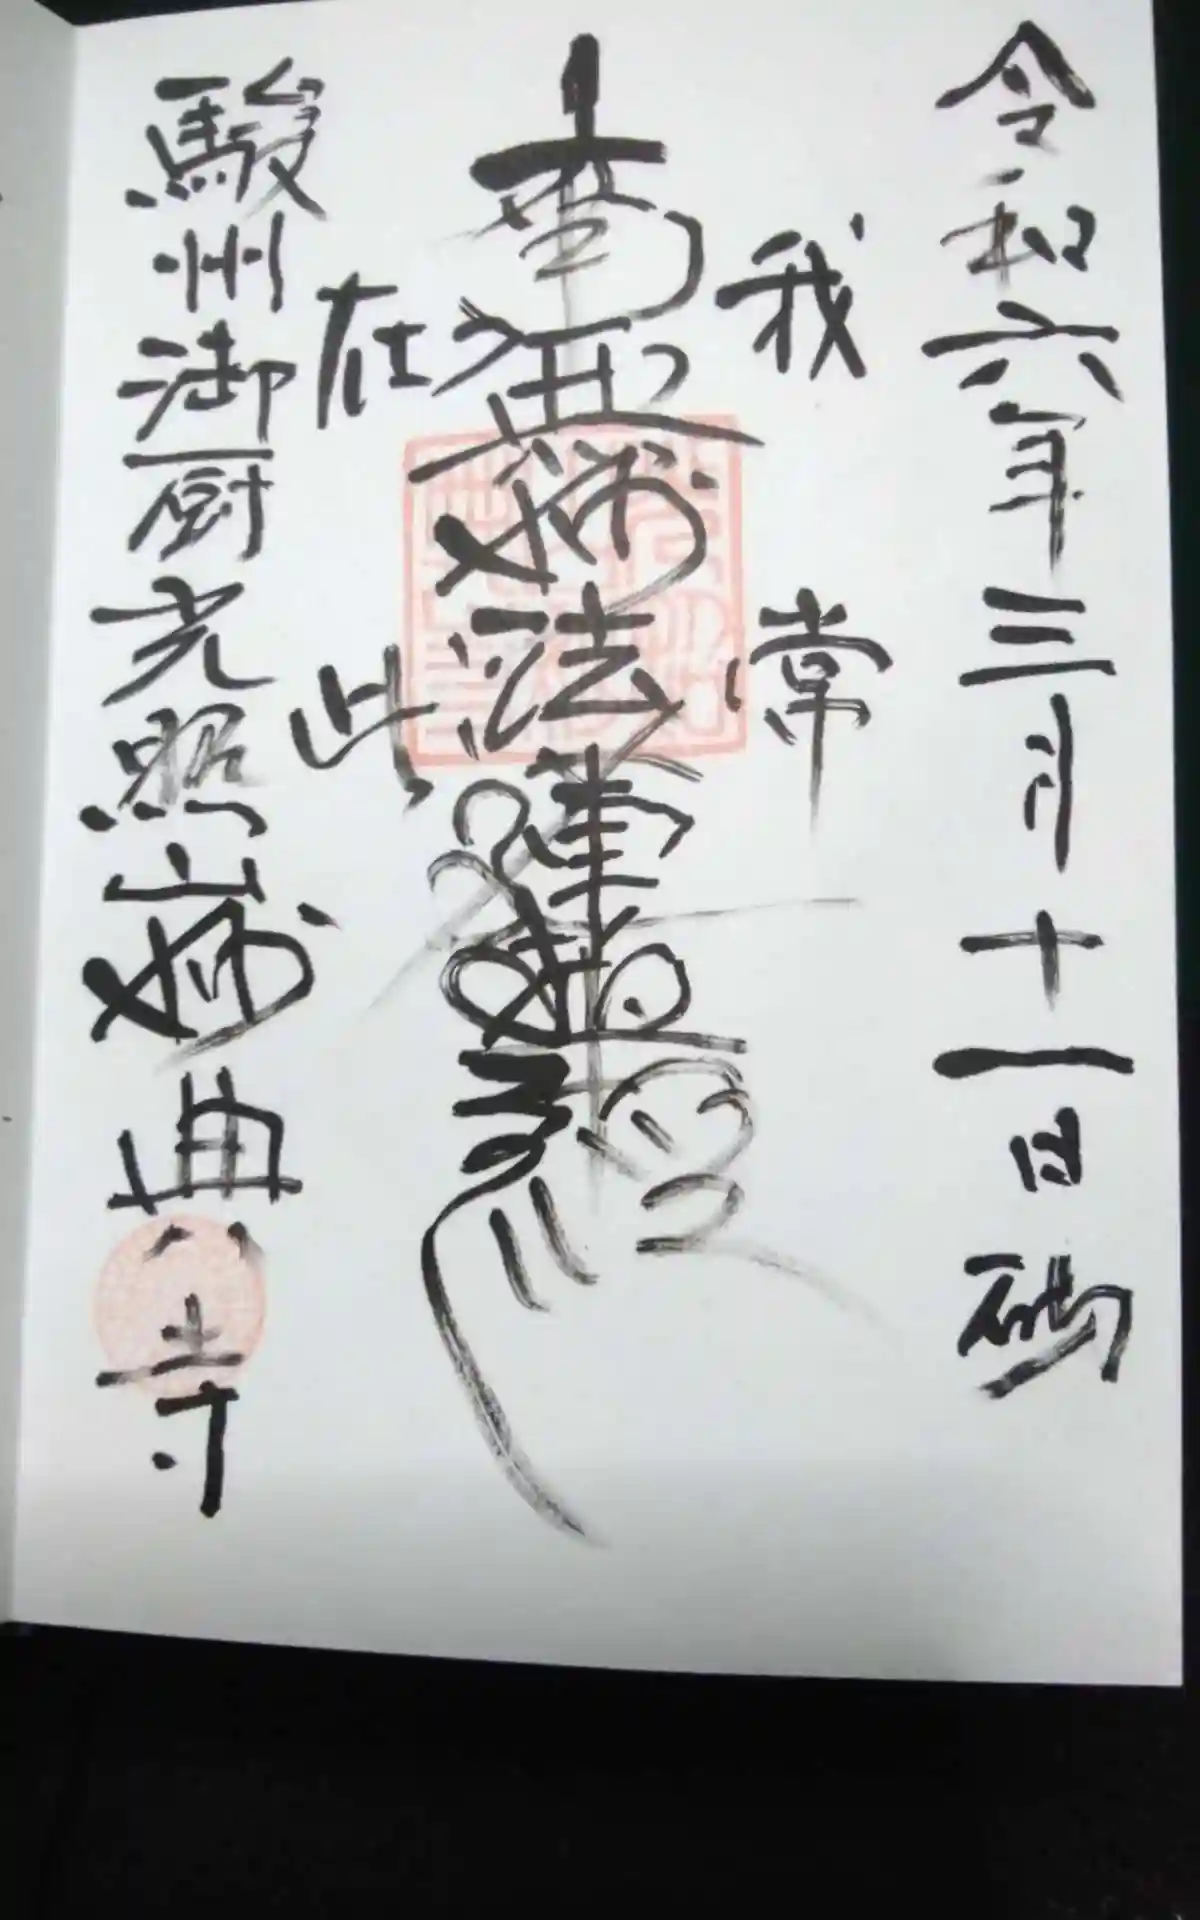 令和六年三月十一日 砌
我常
南無妙法蓮華経
在此
駿州御厨光照山妙典寺